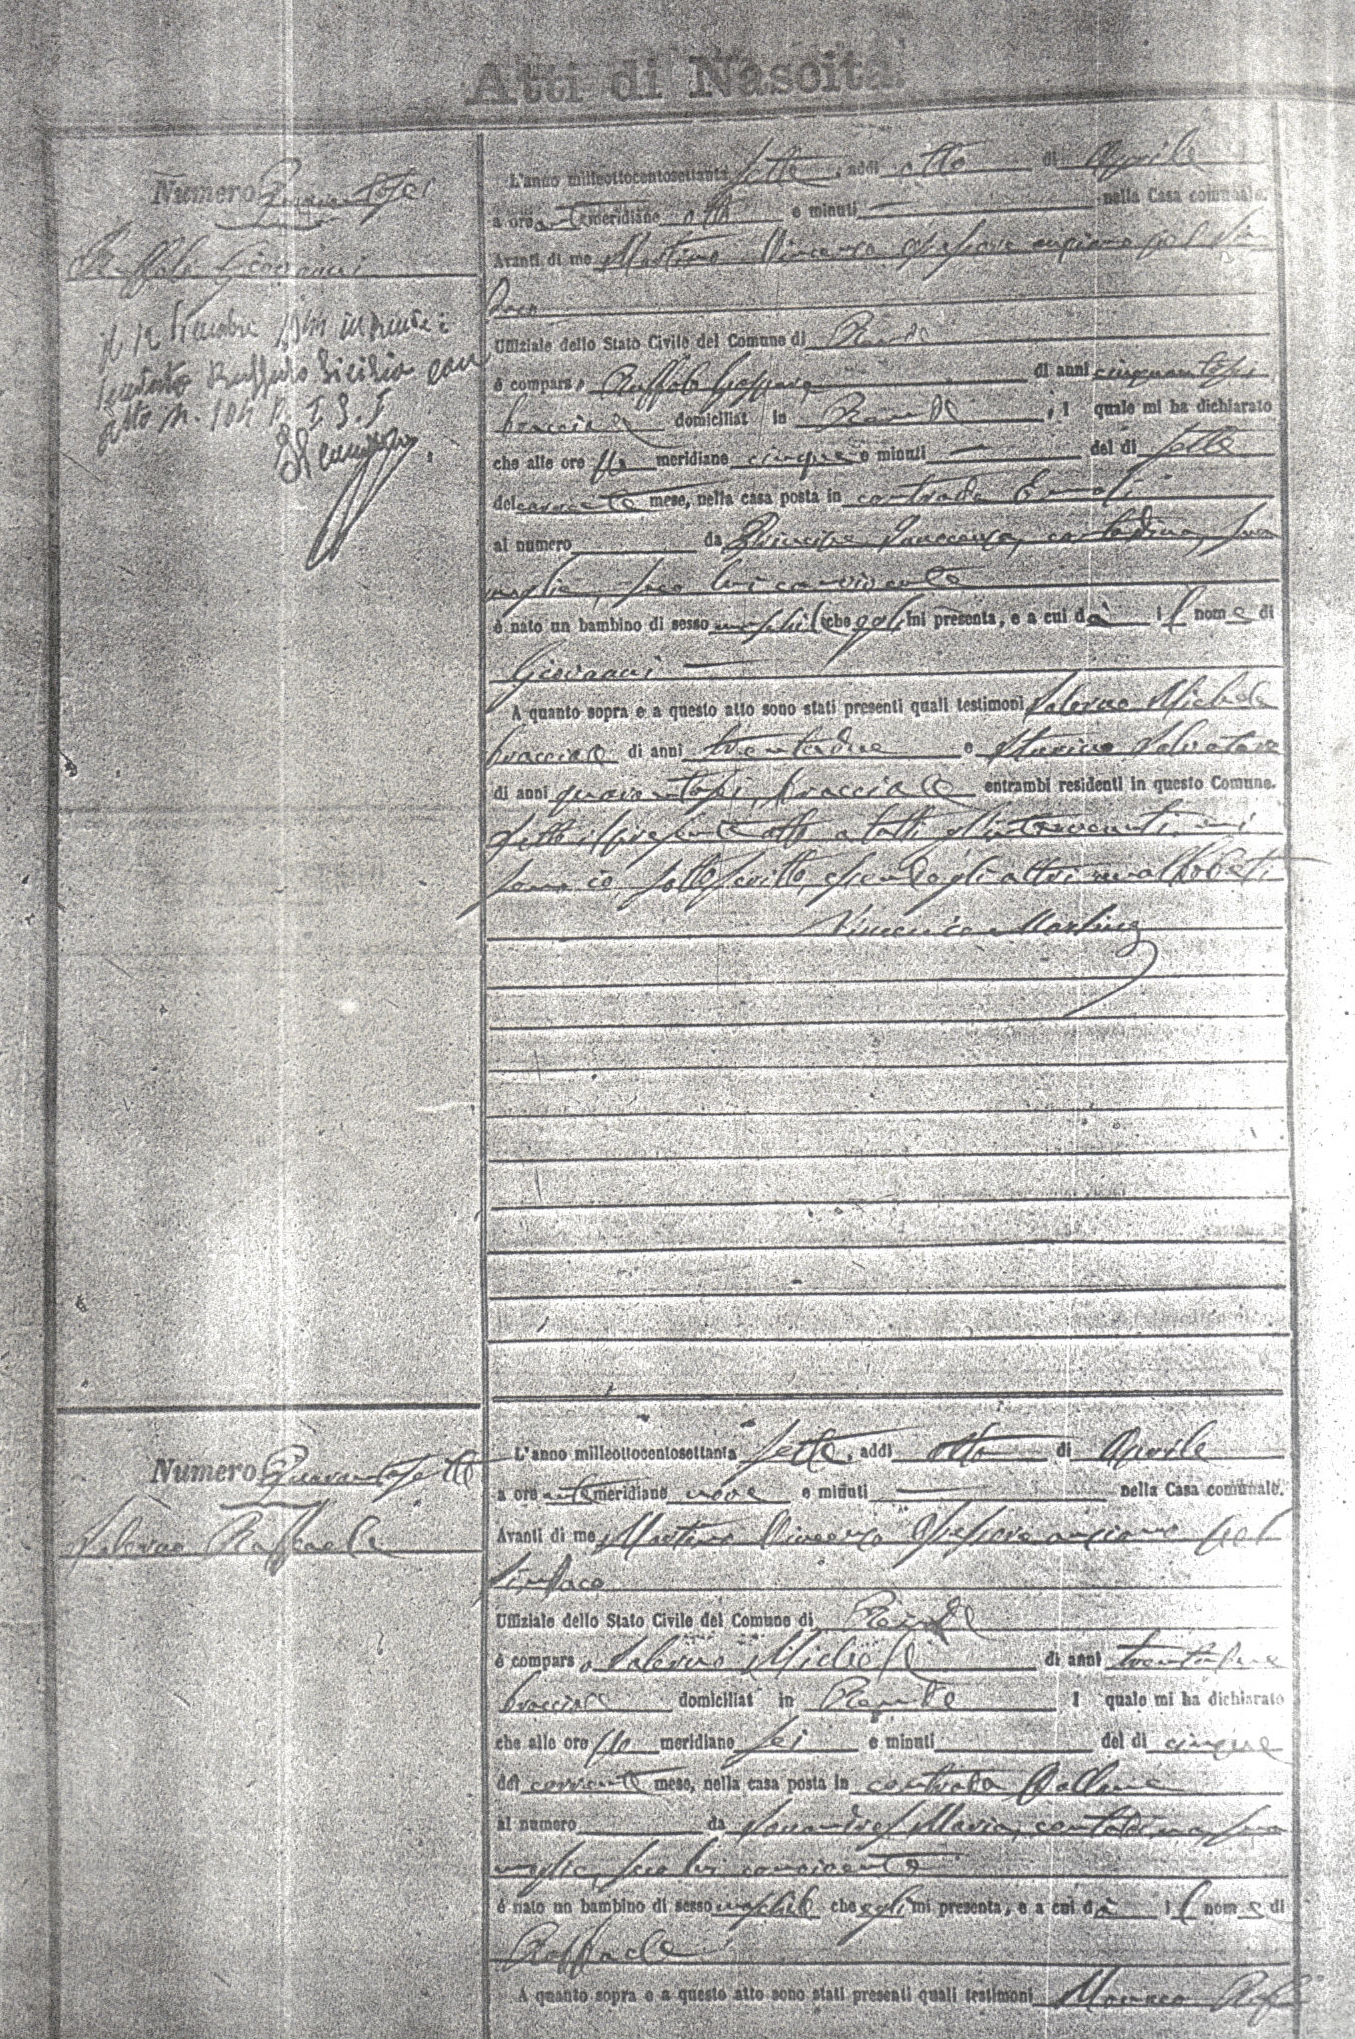 Atti di Nascita
Numero Quarantasei
Ruffolo Giovanni
Ruffolo Sicilia con
atto N. P. I. S. I
L'anno milleottocentosettanta sette, addi otto di Aprile
a ore antemeridiane otto e minuti nella Casa comunale.
Avanti di me Martino Vincenzo Assessore anziano pel Sin
daco
Uffiziale dello Stato Civile del Comune di Rende
è comparso Ruffolo di anni cinquantasei
bracciale domiciliat in Rende, i quale mi ha dichiarato
che alle ore meridiane cinque e minuti del dì sette
del corrente mese, nella casa posta in contrada
al numero da Principe contadina, sua
moglie, seco lui convivente
è nato un bambino di sesso maschile che egli mi presenta, e a cui dà il nome di
Giovanni
A quanto sopra e a questo atto sono stati presenti quali testimoni Salerno Michele
bracciale di anni trentadue e Salvatore
di anni quarantasei, bracciale entrambi residenti in questo Comune.
Letto il presente atto a tutti gl'intervenuti, mi
sono io sottoscritto, essendo gli altri analfabeti
Vincenzo Martino
Numero Quarantasette
Salerno Raffaele
L'anno milleottocentosettanta sette, addi otto di Aprile
a ore antemeridiane nove e minuti nella Casa comunale.
Avanti di me Martino Vincenzo Assessore anziano pel
Sindaco
Uffiziale dello Stato Civile del Comune di Rende
è comparso Salerno Michele di anni trentadue
bracciale domiciliat in Rende I quale mi ha dichiarato
che alle ore meridiane sei e minuti del dì cinque
del corrente mese, nella casa posta in contrada
al numero da Maria, contadina, sua
moglie, seco lui convivente
è nato un bambino di sesso maschile che egli mi presenta, e a cui dà il nome di
Raffaele
A quanto sopra e a questo atto sono stati presenti quali testimoni Monaco